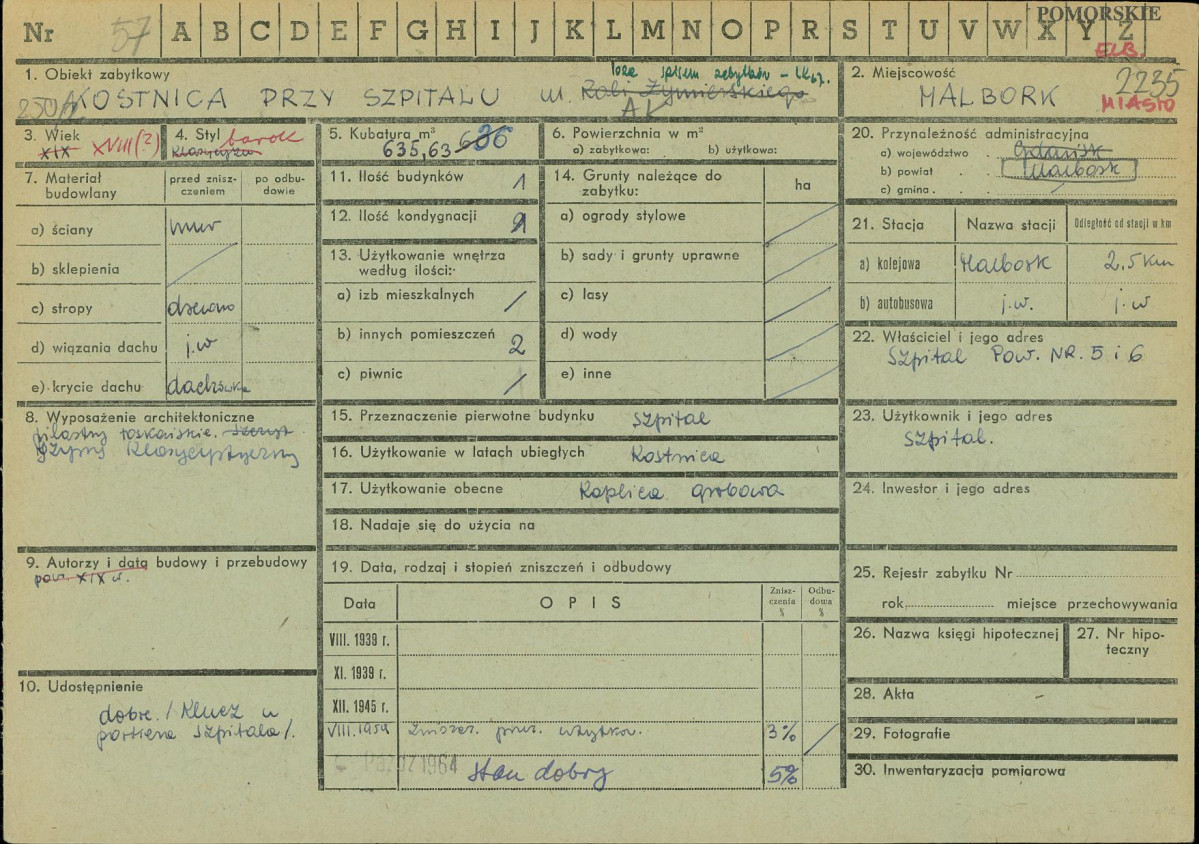 POMORSKIE
Nr 57 A B C D E F G H I J K L M N O P R S T U V W X Y Z
ELB.
1. Obiekt zabytkowy
poza spisem zabytków
KOSTNICA PRZY SZPITALU ul. Roli Żymierskiego
AK
2. Miejscowość 2235
MALBORK MIASTO
3. Wiek
XIX XVIII(?)
4. Styl barok
Klasycyzm
5. Kubatura m³
635,63 636
6. Powierzchnia w m²
a) zabytkowa: b) użytkowa:
7. Materiał budowlany
przed zniszczeniem
po odbudowie
a) ściany mur
b) sklepienia
c) stropy drewno
d) wiązania dachu j.w
e) krycie dachu dachówka
8. Wyposażenie architektoniczne
pilastry toskańskie. Szczyt
gzyms klasycystyczny
9. Autorzy i data budowy i przebudowy
XIX w.
10. Udostępnienie
dobre. / Klucz u
portiera Szpitala /.
11. Ilość budynków 1
12. Ilość kondygnacji
13. Użytkowanie wnętrza
według ilości:
a) izb mieszkalnych /
b) innych pomieszczeń 2
c) piwnic /
14. Grunty należące do
zabytku: ha
a) ogrody stylowe
b) sady i grunty uprawne
c) lasy
d) wody
e) inne
15. Przeznaczenie pierwotne budynku Szpital
16. Użytkowanie w latach ubiegłych Kostnica
17. Użytkowanie obecne Kaplica grobowa
18. Nadaje się do użycia na
19. Data, rodzaj i stopień zniszczeń i odbudowy
Data OPIS Zniszczenia % Odbudowa %
VIII. 1939 r.
XI. 1939 r.
XII. 1945 r.
VIII. 1959 Zniszcz. przez użytkow. 3%
Paźdz 1964 stan dobry 5%
20. Przynależność administracyjna
a) województwo Gdańsk
b) powiat Malbork
c) gmina
21. Stacja Nazwa stacji Odległość od stacji w km
a) kolejowa Malbork 2,5 km
b) autobusowa j.w. j.w
22. Właściciel i jego adres
Szpital Pow. NR. 5 i 6
23. Użytkownik i jego adres
Szpital.
24. Inwestor i jego adres
25. Rejestr zabytku Nr
rok miejsce przechowywania
26. Nazwa księgi hipotecznej
27. Nr hipoteczny
28. Akta -
29. Fotografie
30. Inwentaryzacja pomiarowa